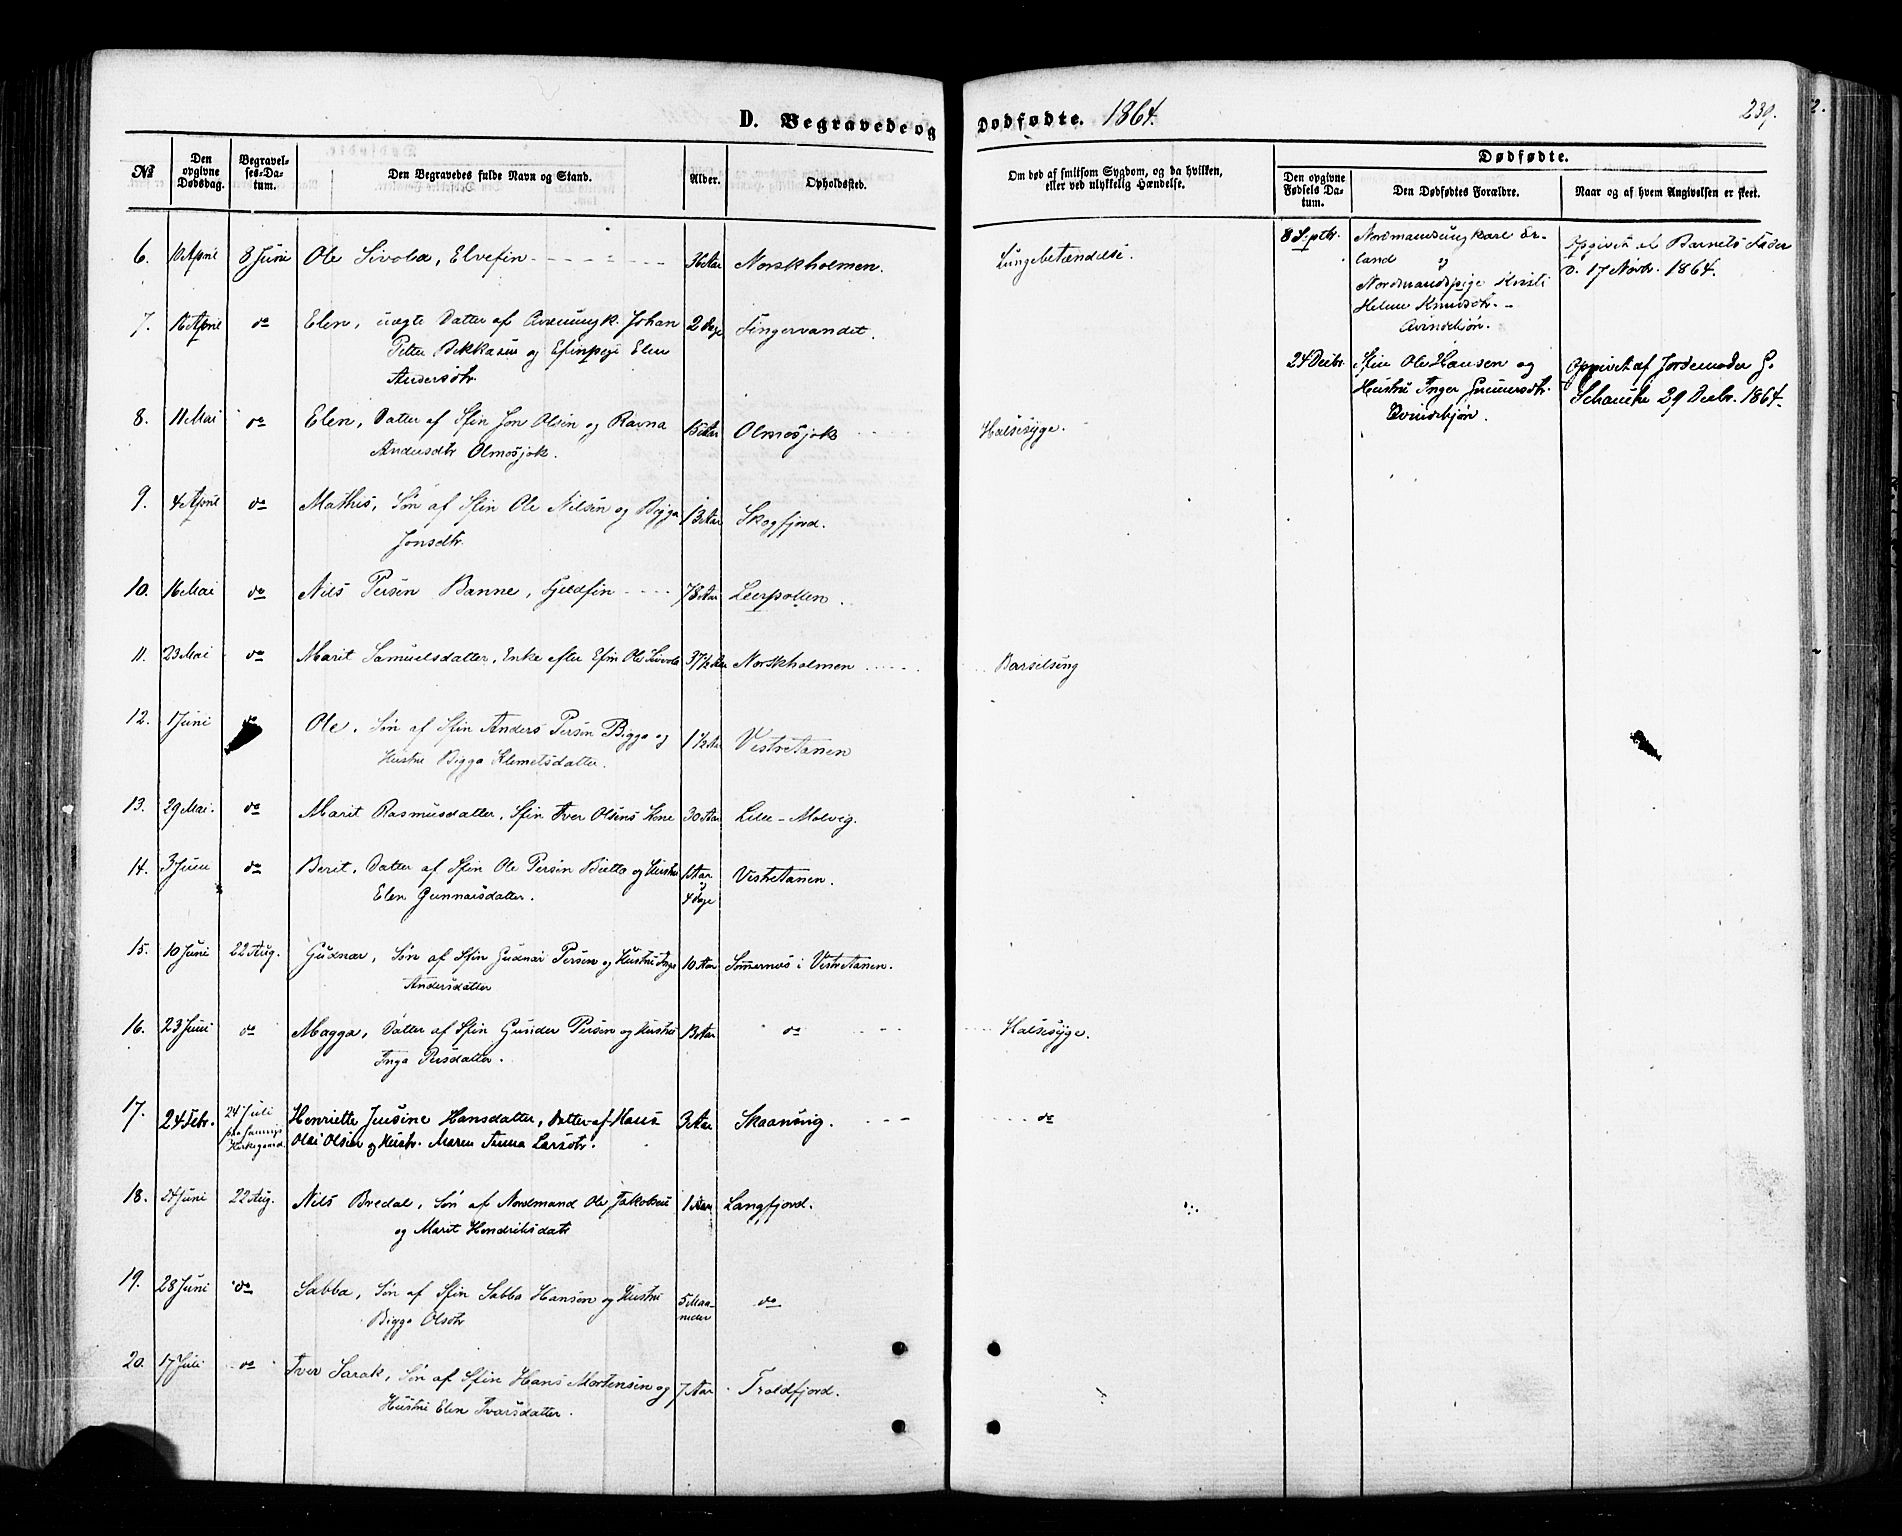 D. Begravede og Dødfødte. 1864.
239.
№
Den opgivne Dødsdag.
Begravelses-Datum.
Den Begravedes fulde Navn og Stand.
Alder.
Opholdssted.
Om død af smitsom Sygdom, og da hvilken, eller ved ulykkelig Hændelse.
Dødfødte.
Den opgivne Fødsels Datum.
Den Dødfødtes Forældre.
Naar og af hvem Angivelsen er skeet.
6. April 8 Juni Ole Sivola, Elvefin 36 Aar Norskholmen. Lungebetændelse.
7. 16 April do Elen, uægte Datter af Johan 2 Dage Fingervandet.
Petter og Efinpige Elen
Andersdtr.
8. 11 Mai do Elen, Datter af Sfin Jon Olsen og Ravna 15 Aar Olmosjok Halsesyge.
Andersdtr Olmosjok.
9. 4 April do Mathis, Søn af Sfin Ole Nilsen og Bigga 13 Aar Skogfjord.
Jonsdtr.
10. 16 Mai do Nils Persen Banne, Fjeldfin 78 Aar Leerpollen.
11. 23 Mai do Marit Samuelsdatter, Enke efter Efin Ole Sivola 37½ Aar Norskholmen Barselseng
12. 1 Juni do Ole, Søn af Sfin Anders Persen Bigga og 1½ Aar Vestretanen
Hustru Bigga Klemetsdatter.
13. 29 Mai. do Marit Rasmusdatter, Sfin Iver Olsens Kone 30 Aar Lille-Molvig.
14. 3 Juni do Berit, Datter af Sfin Ole Persen og Hustru 1 Aar Vestretanen.
Elen Gunnarsdatter. 4 Dage
15. 10 Juni 22 Aug. Gudnar, Søn af Sfin Gudnar Persen og Hustru Inga 10 Aar i Vestretanen.
Andersdatter
16. 23 Juni do Magga, Datter af Sfin Gunder Persen og Hustru 13 Aar do Halsesyge.
Inga Persdatter.
17. 24 Febr. 24 Juli Henriette Jensine Hansdatter, Datter af Hans 3 Aar Skaanvig. do
Olai Olsen og Hustr. Maren Anna Larsdtr.
18. Juni 22 Aug. Nils Bredal, Søn af Nordmand Ole Jakobsen 1 Aar Langfjord.
og Marit Hendriksdatr
19. 28 Juni do Sabba, Søn af Sfin Sabba Hansen og Hustru 5 Maaneder do
Bigga Olsdtr
20. 17 Juli do Iver Sarak, Søn af Sfin Hans Mortensen og 7 Aar Troldfjord.
Hustru Elen Ivarsdatter.
8 Septbr. Nordmandsungkarl Er-
land og
Nordmandspige Kirsti
Helene Knudsdtr.
Opgivet af Barnets Fader
d. 17 Novbr. 1864.
24 Decbr. Sfin Ole Hansen og
Hustru Inger Gunnersdtr
Opgivet af Jordemoder G.
Schanche 29 Decbr. 1864.